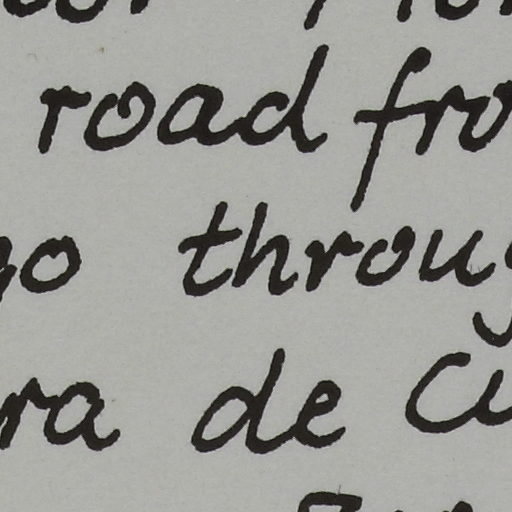 road fro
go throug
ra de Cu